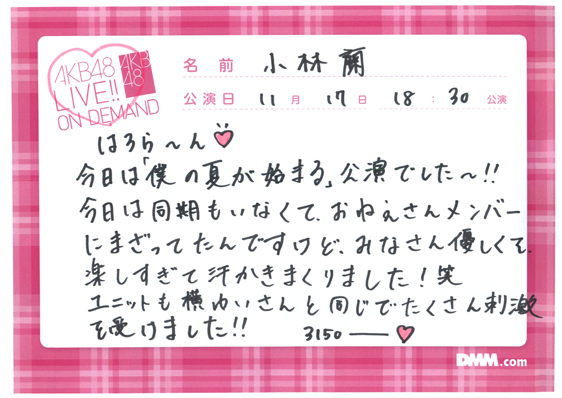 AKB48
LIVE!!
ON DEMAND
AKB
48
名前 小林蘭
公演日 11月17日 18:30公演
はろら〜ん
今日は「僕の夏が始まる」公演でした〜!!
今日は同期もいなくて、おねぇさんメンバー
にまざってたんですけど、みなさん優しくて、
楽しすぎて汗かきまくりました!笑
ユニットも横ゆいさんと同じでたくさん刺激
を受けました!!
3150
DMM.com